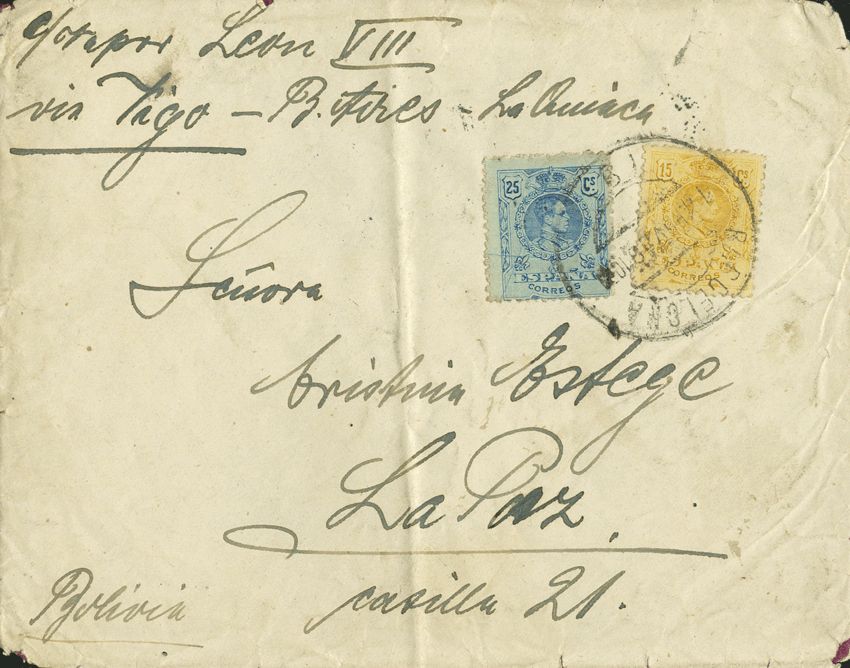 Leon VIII
via Vigo - B. Aires La Quiaca
25 Cs
CORREOS
15 Cs
CORREOS
BARCELONA
Señora
Cristina Estege
La Paz
casilla 21.
Bolivia